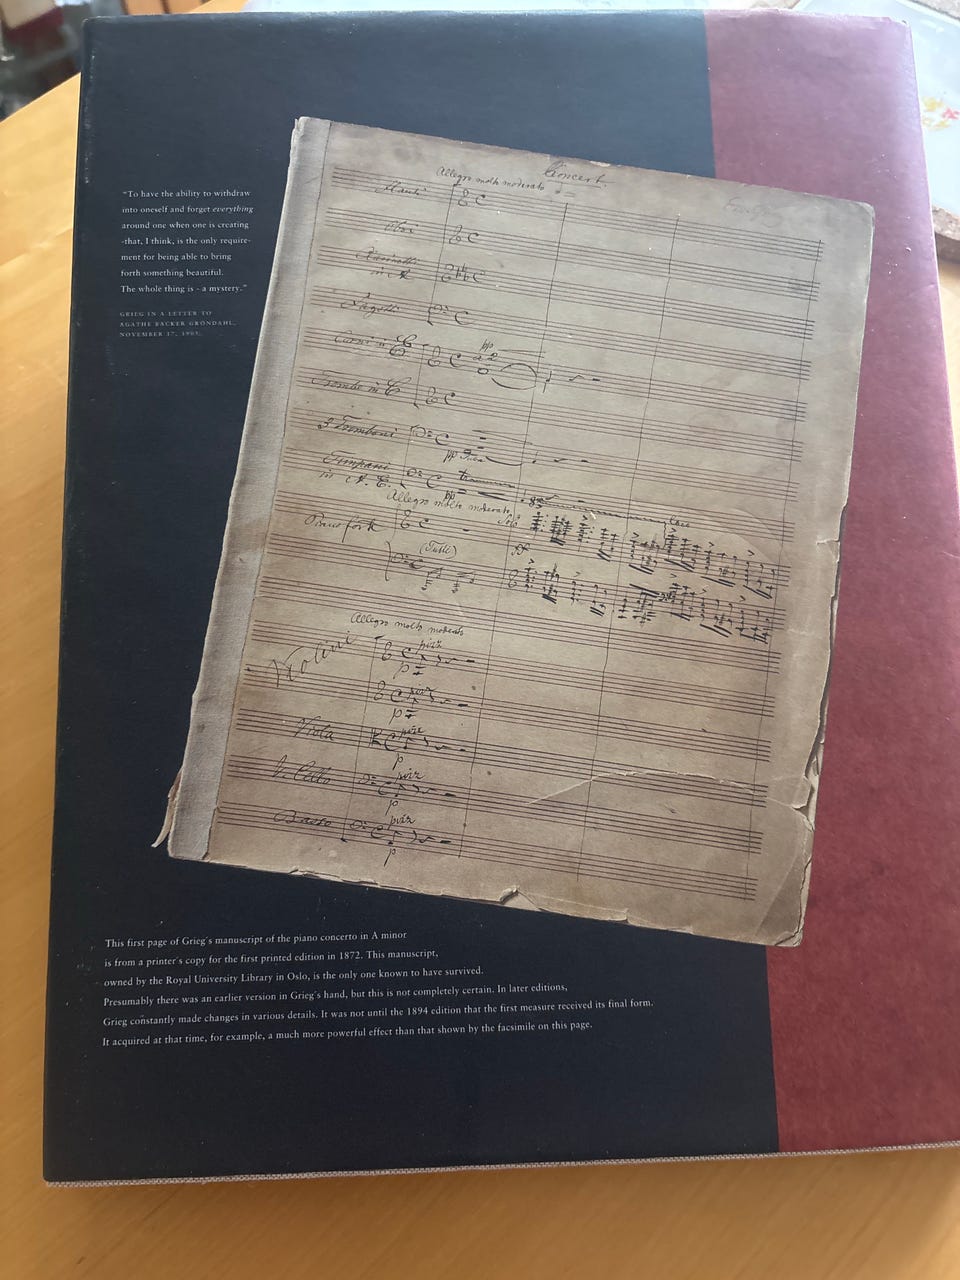 "To have the ability to withdraw
into oneself and forget everything
around one when one is creating
-that, I think, is the only require-
ment for being able to bring
forth something beautiful.
The whole thing is - a mystery."
GRIEG IN A LETTER TO
AGATHE BACKER GRÖNDAHL,
NOVEMBER 17, 1905.
Concert.
Allegro molto moderato
Flauti
Oboi
Klarinetti
in A
Fagotti
Corni in E
pp
a 2
Trombe in C
3 Tromboni
pp
Timpani
in A. E.
pp
Allegro molto moderato
Solo
8va
Pianoforte
(Tutti)
Allegro molto moderato
Violini
pizz
p
pizz
p
Viola
pizz
p
V. Cello
pizz
p
Basso
pizz
p
This first page of Grieg's manuscript of the piano concerto in A minor
is from a printer's copy for the first printed edition in 1872. This manuscript,
owned by the Royal University Library in Oslo, is the only one known to have survived.
Presumably there was an earlier version in Grieg's hand, but this is not completely certain. In later editions,
Grieg constantly made changes in various details. It was not until the 1894 edition that the first measure received its final form.
It acquired at that time, for example, a much more powerful effect than that shown by the facsimile on this page.